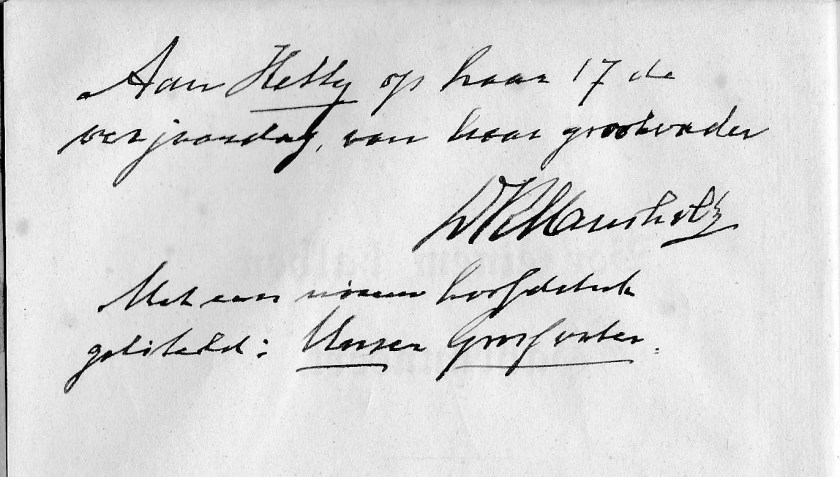 Aan Hetty op haar 17 de
verjaardag, van haar grootvader
DRMansholt
Met een nieuw hoofdstuk
getiteld: Unser Grossvater.